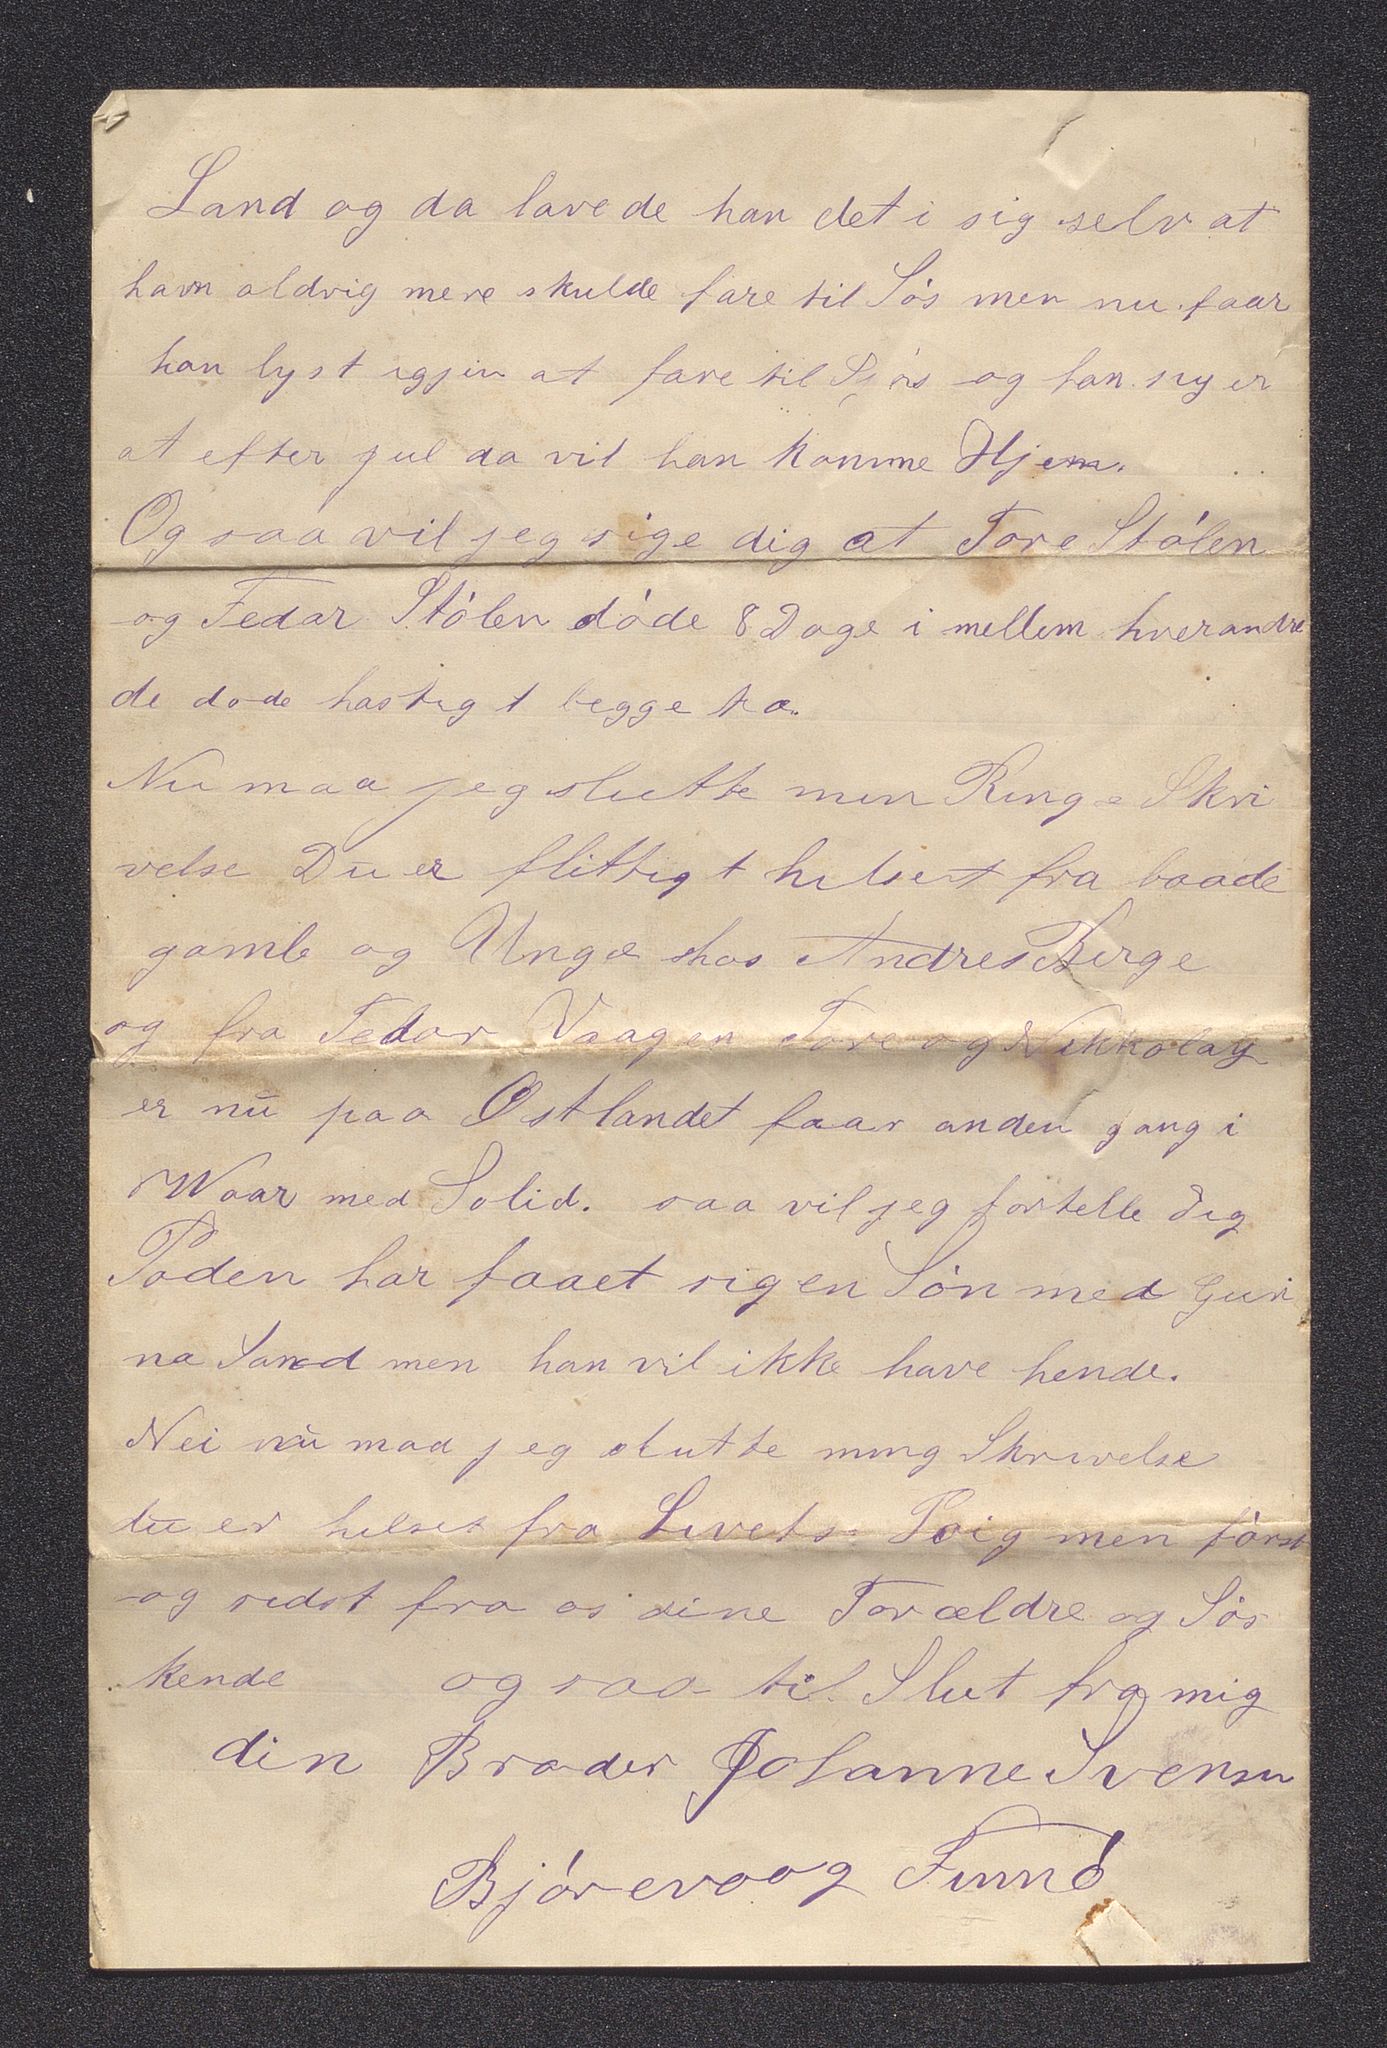 Land og da lavede han det i sig selv at
havn aldrig mere skulde fare til Søs men nu faar
han lyst igjen at fare til Sjøs og han siger
at efter jul da vil han komme Hjem.
Og saa vil jeg sige dig at Tore Stólen
og Fedar Stólen dóde 8 Dage i mellem hverandre
de dode hastigt begge to.
Nu maa jeg slutte min Ringe Skri
velse Du er flittigt helset fra baade
gamle og Unge hos Andres Berge
og fra Fedar Vaagen Tore og Nikkolay
er nu paa Østlandet faar anden gang i
Waar med Solid. saa vil jeg fortelle Dig
Poden har faaet sig en Són med Guri
na Sand men han vil ikke have hende.
Nei nu maa jeg slutte ming Skrivelse
du er helset fra Sivets men fórst
og sidst fra os dine Forældre og Søs
kende og saa til Slut fra mig
din Broder Johanne Svensen
Bjórevaag Finnó